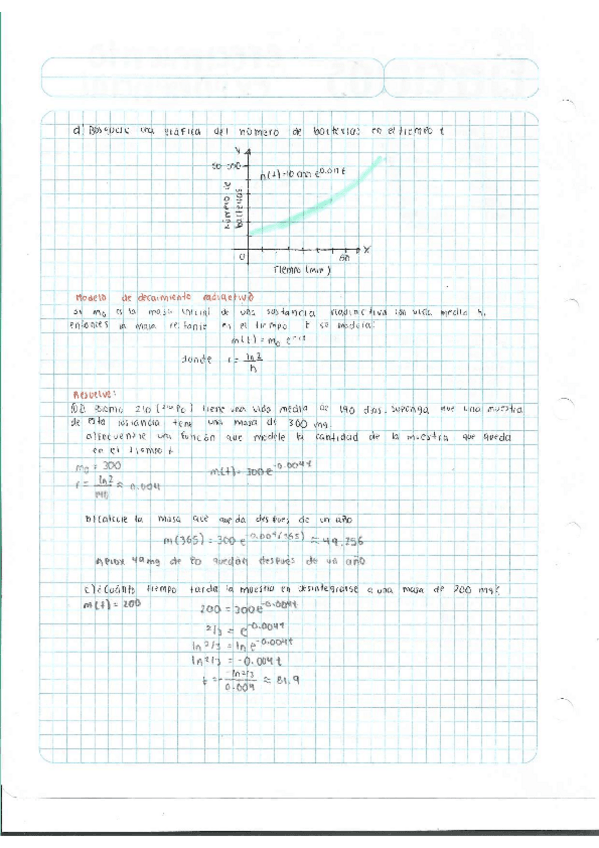 d) Bosqueje una gráfica del número de bacterias en el tiempo t
Y
50 000
n(t)=10 000 e^0.01t
Número de bacterias
0
80
X
Tiempo (min)
Modelo de decaimiento radiactivo
Si m₀ es la masa inicial de una sustancia radiactiva con vida media h,
entonces la masa restante es el tiempo t se modela:
m(t) = m₀ e^-rt
donde r = ln2/h
Resuelve:
Polonio 210 (²¹⁰Po) tiene una vida media de 140 días. Suponga que una muestra
de esta sustancia tiene una masa de 300 mg.
a) Encuentre una función que modele la cantidad de la muestra que queda
en el tiempo t
m₀ = 300
m(t) = 300e^-0.004t
r = ln2/140 ≈ 0.004
b) Calcule la masa que queda después de un año
m(365) = 300 e^-0.004(365) ≈ 49.256
Aprox 49 mg de Po quedan después de un año
c) ¿Cuánto tiempo tarda la muestra en desintegrarse a una masa de 200 mg?
m(t) = 200
200 = 300e^-0.004t
2/3 = e^-0.004t
ln 2/3 = ln e^-0.004t
ln 2/3 = -0.004 t
t = - ln 2/3 / 0.004 ≈ 81.9